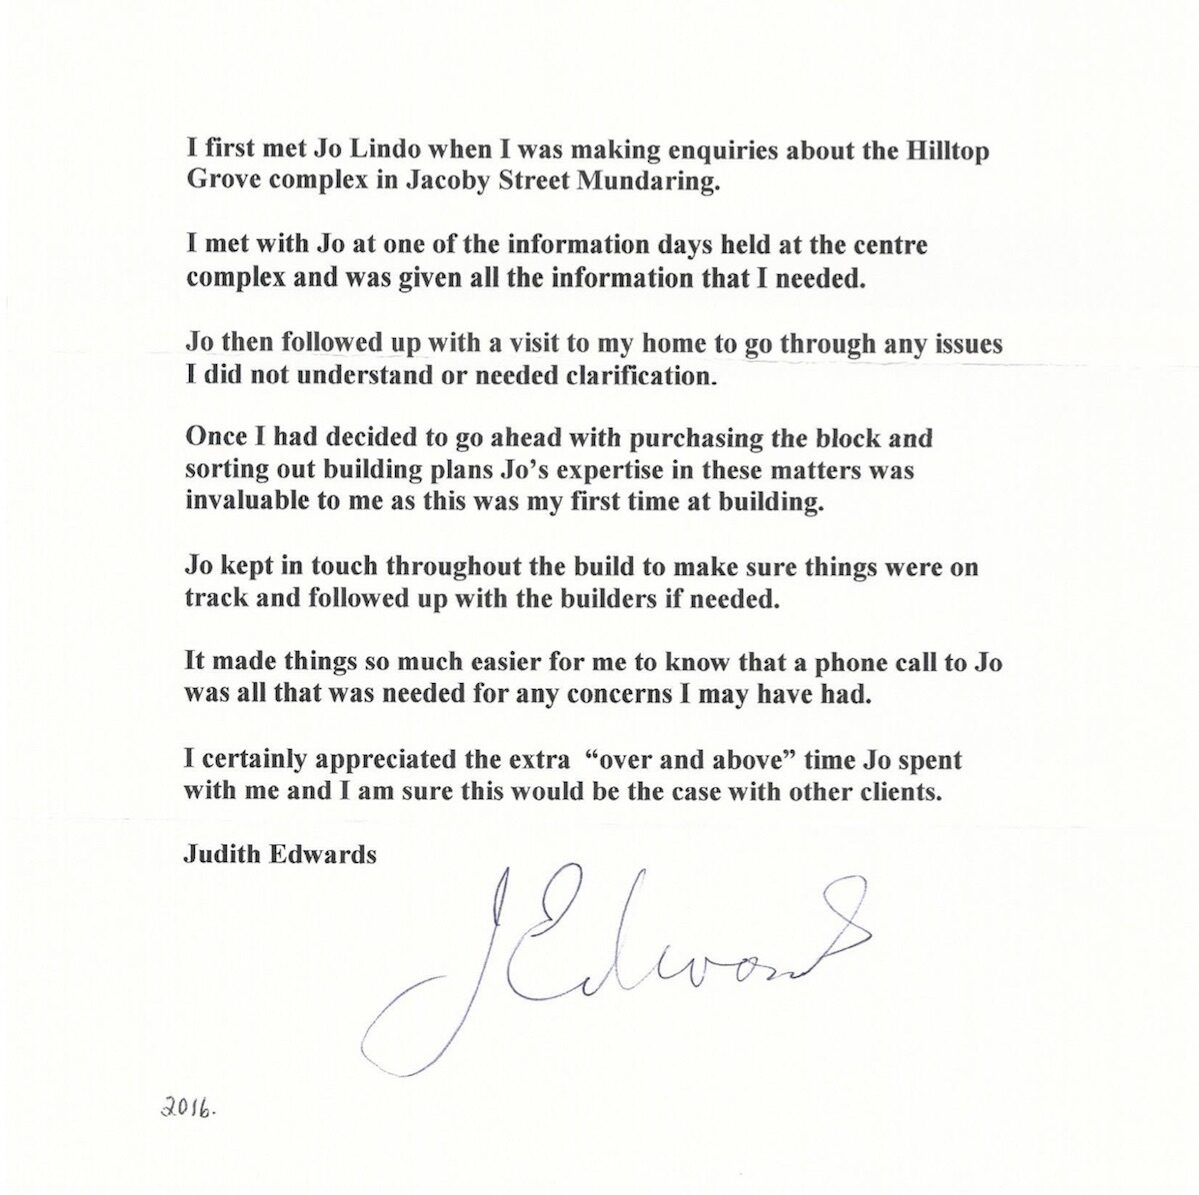 I first met Jo Lindo when I was making enquiries about the Hilltop
Grove complex in Jacoby Street Mundaring.
I met with Jo at one of the information days held at the centre
complex and was given all the information that I needed.
Jo then followed up with a visit to my home to go through any issues
I did not understand or needed clarification.
Once I had decided to go ahead with purchasing the block and
sorting out building plans Jo’s expertise in these matters was
invaluable to me as this was my first time at building.
Jo kept in touch throughout the build to make sure things were on
track and followed up with the builders if needed.
It made things so much easier for me to know that a phone call to Jo
was all that was needed for any concerns I may have had.
I certainly appreciated the extra  “over and above” time Jo spent
with me and I am sure this would be the case with other clients.
Judith Edwards
J Edwards
2016.